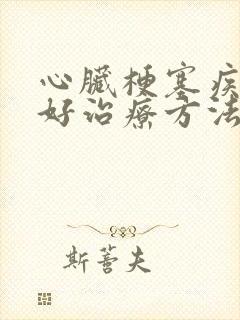 心臟梗塞疾
好治療方法
斯薈夫